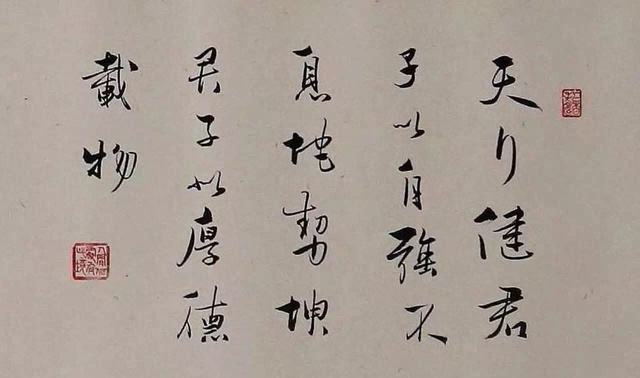 天行健君
子以自強不
息地勢坤
君子以厚德
載物